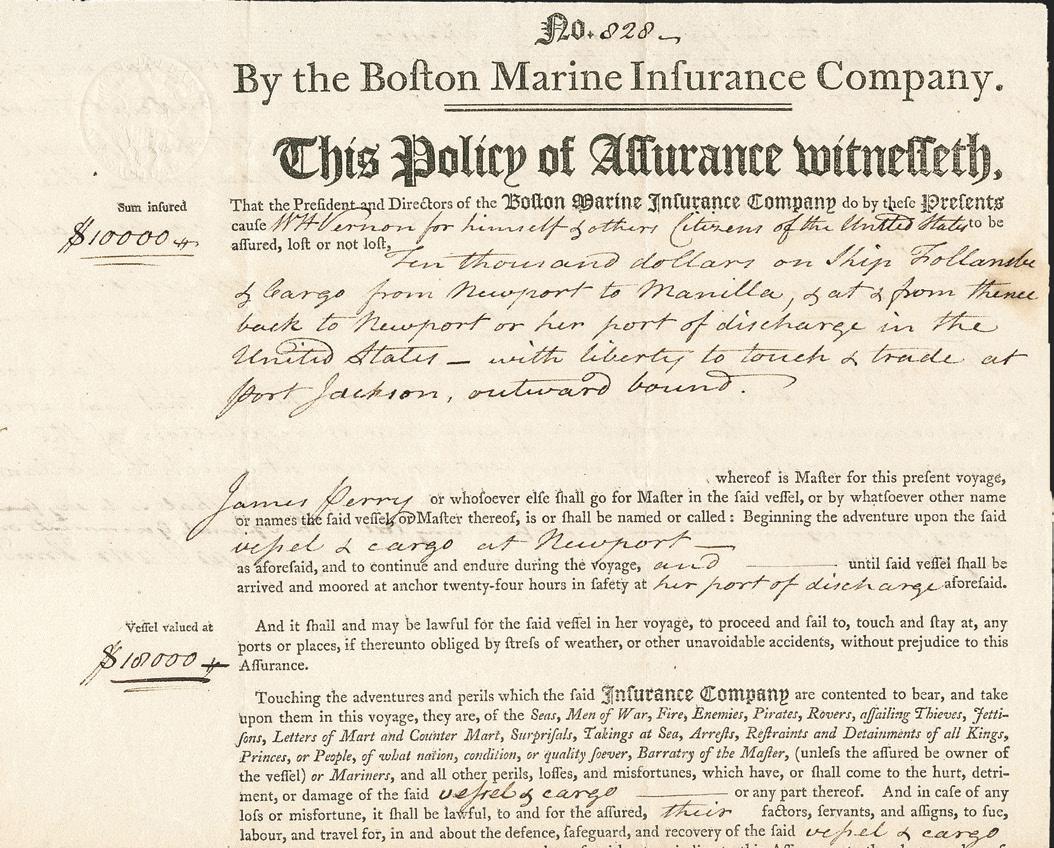 No. 828
By the Boſton Marine Inſurance Company.
This Policy of Aſſurance witneſſeth,
Sum inſured
$10000
That the President and Directors of the Boſton Marine Inſurance Company do by theſe Preſents
cauſe W H Vernon for himself & others Citizens of the United States to be
aſſured, loſt or not loſt,
Ten thousand dollars on Ship Follansbe
& Cargo from Newport to Manilla, & at & from thence
back to Newport or her port of discharge in the
United States — with liberty to touch & trade at
Port Jackson, outward bound.
whereof is Maſter for this preſent voyage,
James Perry or whoſoever elſe ſhall go for Maſter in the ſaid veſſel, or by whatſoever other name
or names the ſaid veſſel, or Maſter thereof, is or ſhall be named or called : Beginning the adventure upon the ſaid
veſsel & cargo at Newport —
as aforeſaid, and to continue and endure during the voyage, and — until ſaid veſſel ſhall be
arrived and moored at anchor twenty-four hours in ſafety at her port of discharge aforeſaid.
Veſſel valued at
$18000
And it ſhall and may be lawful for the ſaid veſſel in her voyage, to proceed and ſail to, touch and ſtay at, any
ports or places, if thereunto obliged by ſtreſs of weather, or other unavoidable accidents, without prejudice to this
Aſſurance.
Touching the adventures and perils which the ſaid Inſurance Company are contented to bear, and take
upon them in this voyage, they are, of the Seas, Men of War, Fire, Enemies, Pirates, Rovers, aſſailing Thieves, Jetti-
ſons, Letters of Mart and Counter Mart, Surpriſals, Takings at Sea, Arreſts, Reſtraints and Detainments of all Kings,
Princes, or People, of what nation, condition, or quality ſoever, Barratry of the Maſter, (unleſs the aſſured be owner of
the veſſel) or Mariners, and all other perils, loſſes, and misfortunes, which have, or ſhall come to the hurt, detri-
ment, or damage of the ſaid veſsel & cargo — or any part thereof. And in caſe of any
loſs or misfortune, it ſhall be lawful, to and for the aſſured, their factors, ſervants, and aſſigns, to ſue,
labour, and travel for, in and about the defence, ſafeguard, and recovery of the ſaid veſsel & cargo